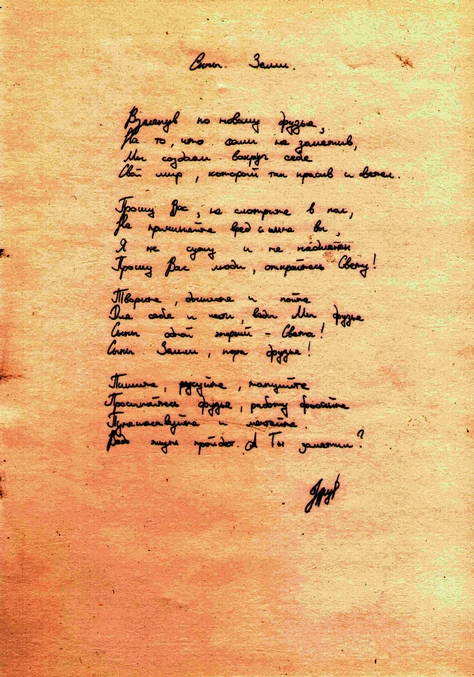 Сыны. Земли.
Взглянув по новому друзья,
На то, что сами не заметив,
Мы создаем вокруг себя
Свой мир, который так красив и светел.
Прошу Вас, не смотрите в пол,
Не причиняйте вред и вы,
Я не сужу и не
Прошу Вас люди, откройтесь Свету!
Творите, дышите и пойте
Для себя и неба, ведь Мы друзья
Сыны одной энергии - Света!
Сыны Земли, пора друзья!
Пишите, рисуйте, танцуйте
Просыпайтесь друзья, работу бросайте
Путешествуйте и мечтайте.
Ведь жизнь пройдет. А Ты заметил?